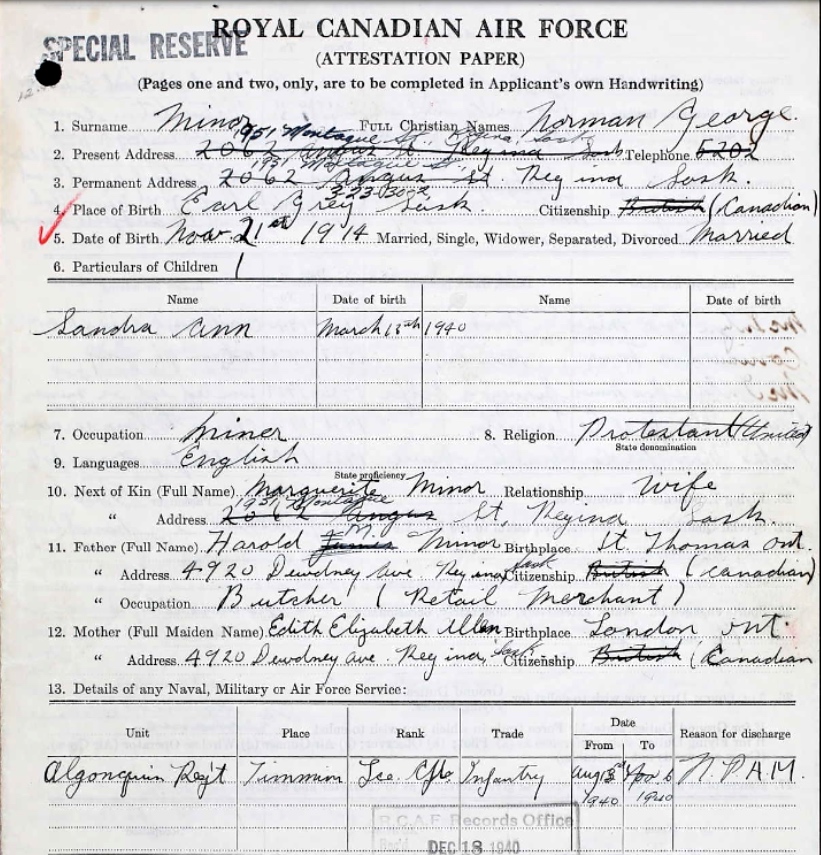 ROYAL CANADIAN AIR FORCE
SPECIAL RESERVE
(ATTESTATION PAPER)
(Pages one and two, only, are to be completed in Applicant's own Handwriting)
1. Surname Minor Full Christian Names Norman George.
1951 Montague St.
2. Present Address 2062 Angus St. Regina Sask Telephone 5202
1951 Montague St.
3. Permanent Address 2062 Angus St. Regina Sask.
4. Place of Birth Earl Grey Sask. Citizenship British (Canadian)
5. Date of Birth Nov 21st 1914 Married, Single, Widower, Separated, Divorced Married
6. Particulars of Children 1
Name Date of birth Name Date of birth
Sandra Ann March 13th 1940
7. Occupation Miner 8. Religion Protestant (United)
State denomination
9. Languages English
State proficiency
10. Next of Kin (Full Name) Marguerite Minor Relationship Wife
1951 Montague
" Address 2062 Angus St, Regina Sask.
11. Father (Full Name) Harold James M. Minor Birthplace St. Thomas Ont.
" Address 4920 Dewdney Ave Regina Sask Citizenship British (Canadian)
" Occupation Butcher (Retail Merchant)
12. Mother (Full Maiden Name) Edith Elizabeth Allen Birthplace London, Ont.
" Address 4920 Dewdney Ave. Regina, Sask Citizenship British (Canadian
13. Details of any Naval, Military or Air Force Service:
Unit Place Rank Trade Date From To Reason for discharge
Algonquin Reg't Timmins Infantry Aug 1940 1940 N.P.A.M.
R.C.A.F. Records Office
Rec'd DEC 18 1940